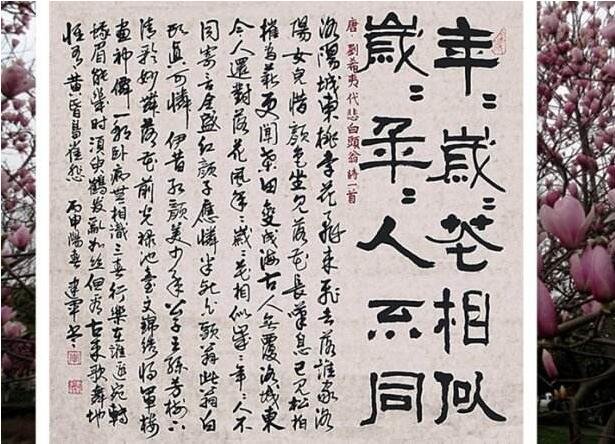 年﹕歲﹕花相似
歲﹕年﹕人不同
唐·劉希夷代悲白頭翁詩一首
洛陽城東桃李花飛來飛去落誰家洛
陽女兒惜顏色坐見落花長嘆息已見松柏
摧為薪更聞桑田變成海古人無覆洛城東
今人還對落花風年﹕歲﹕花相似歲﹕年﹕人不
同寄言全盛紅顏子應憐半死白頭翁此翁白
頭真可憐伊昔紅顏美少年公子王孫芳樹下
清歌妙舞落花前光祿池臺文錦繡將軍樓
畫神僊一朝臥病無相識三春行樂在誰邊宛轉
蛾眉能幾時須臾鶴发亂如絲但看古來歌舞地
惟有黃昏鳥雀悲 丙申陽春